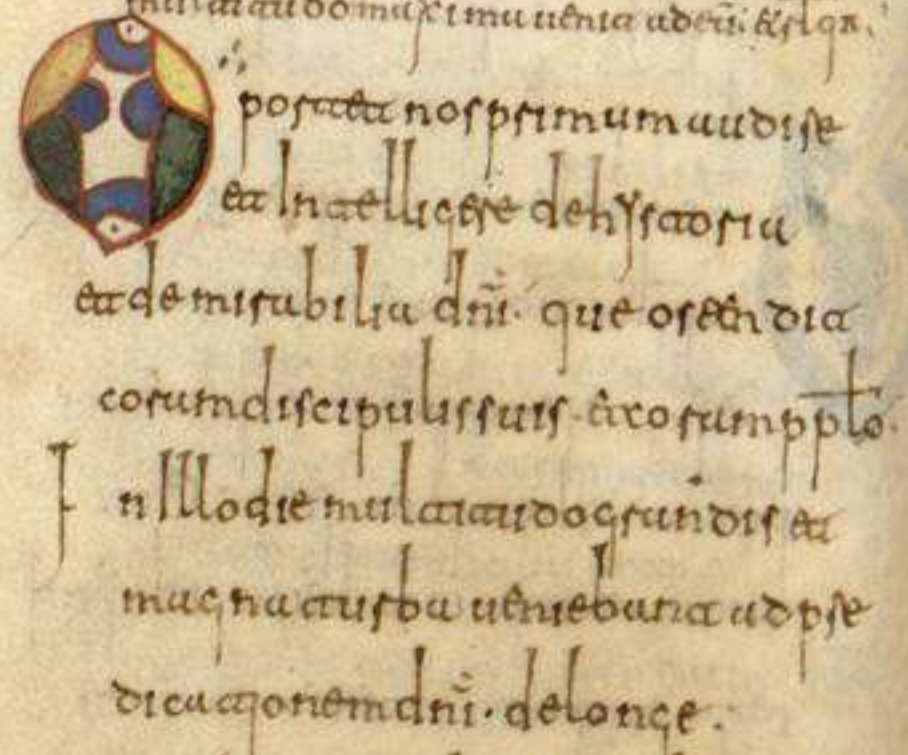 multitudo maxima uenit ad eū.
Oportet nos primum audire
et Intelligere de hystoria
et de mirabilia dn̄i. que ostendit
coram discipulis suis. et coram pplo.
In Illo die multitudo grandis et
magna turba ueniebant ad pre
dicationem dn̄i. de longe.